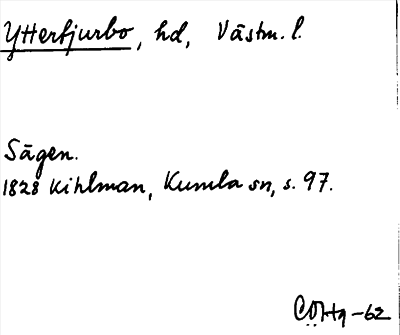 Yttertjurbo, hd, Västm. l.
Sägen.
1828 Kihlman, Kumla sn, s. 97.
-62